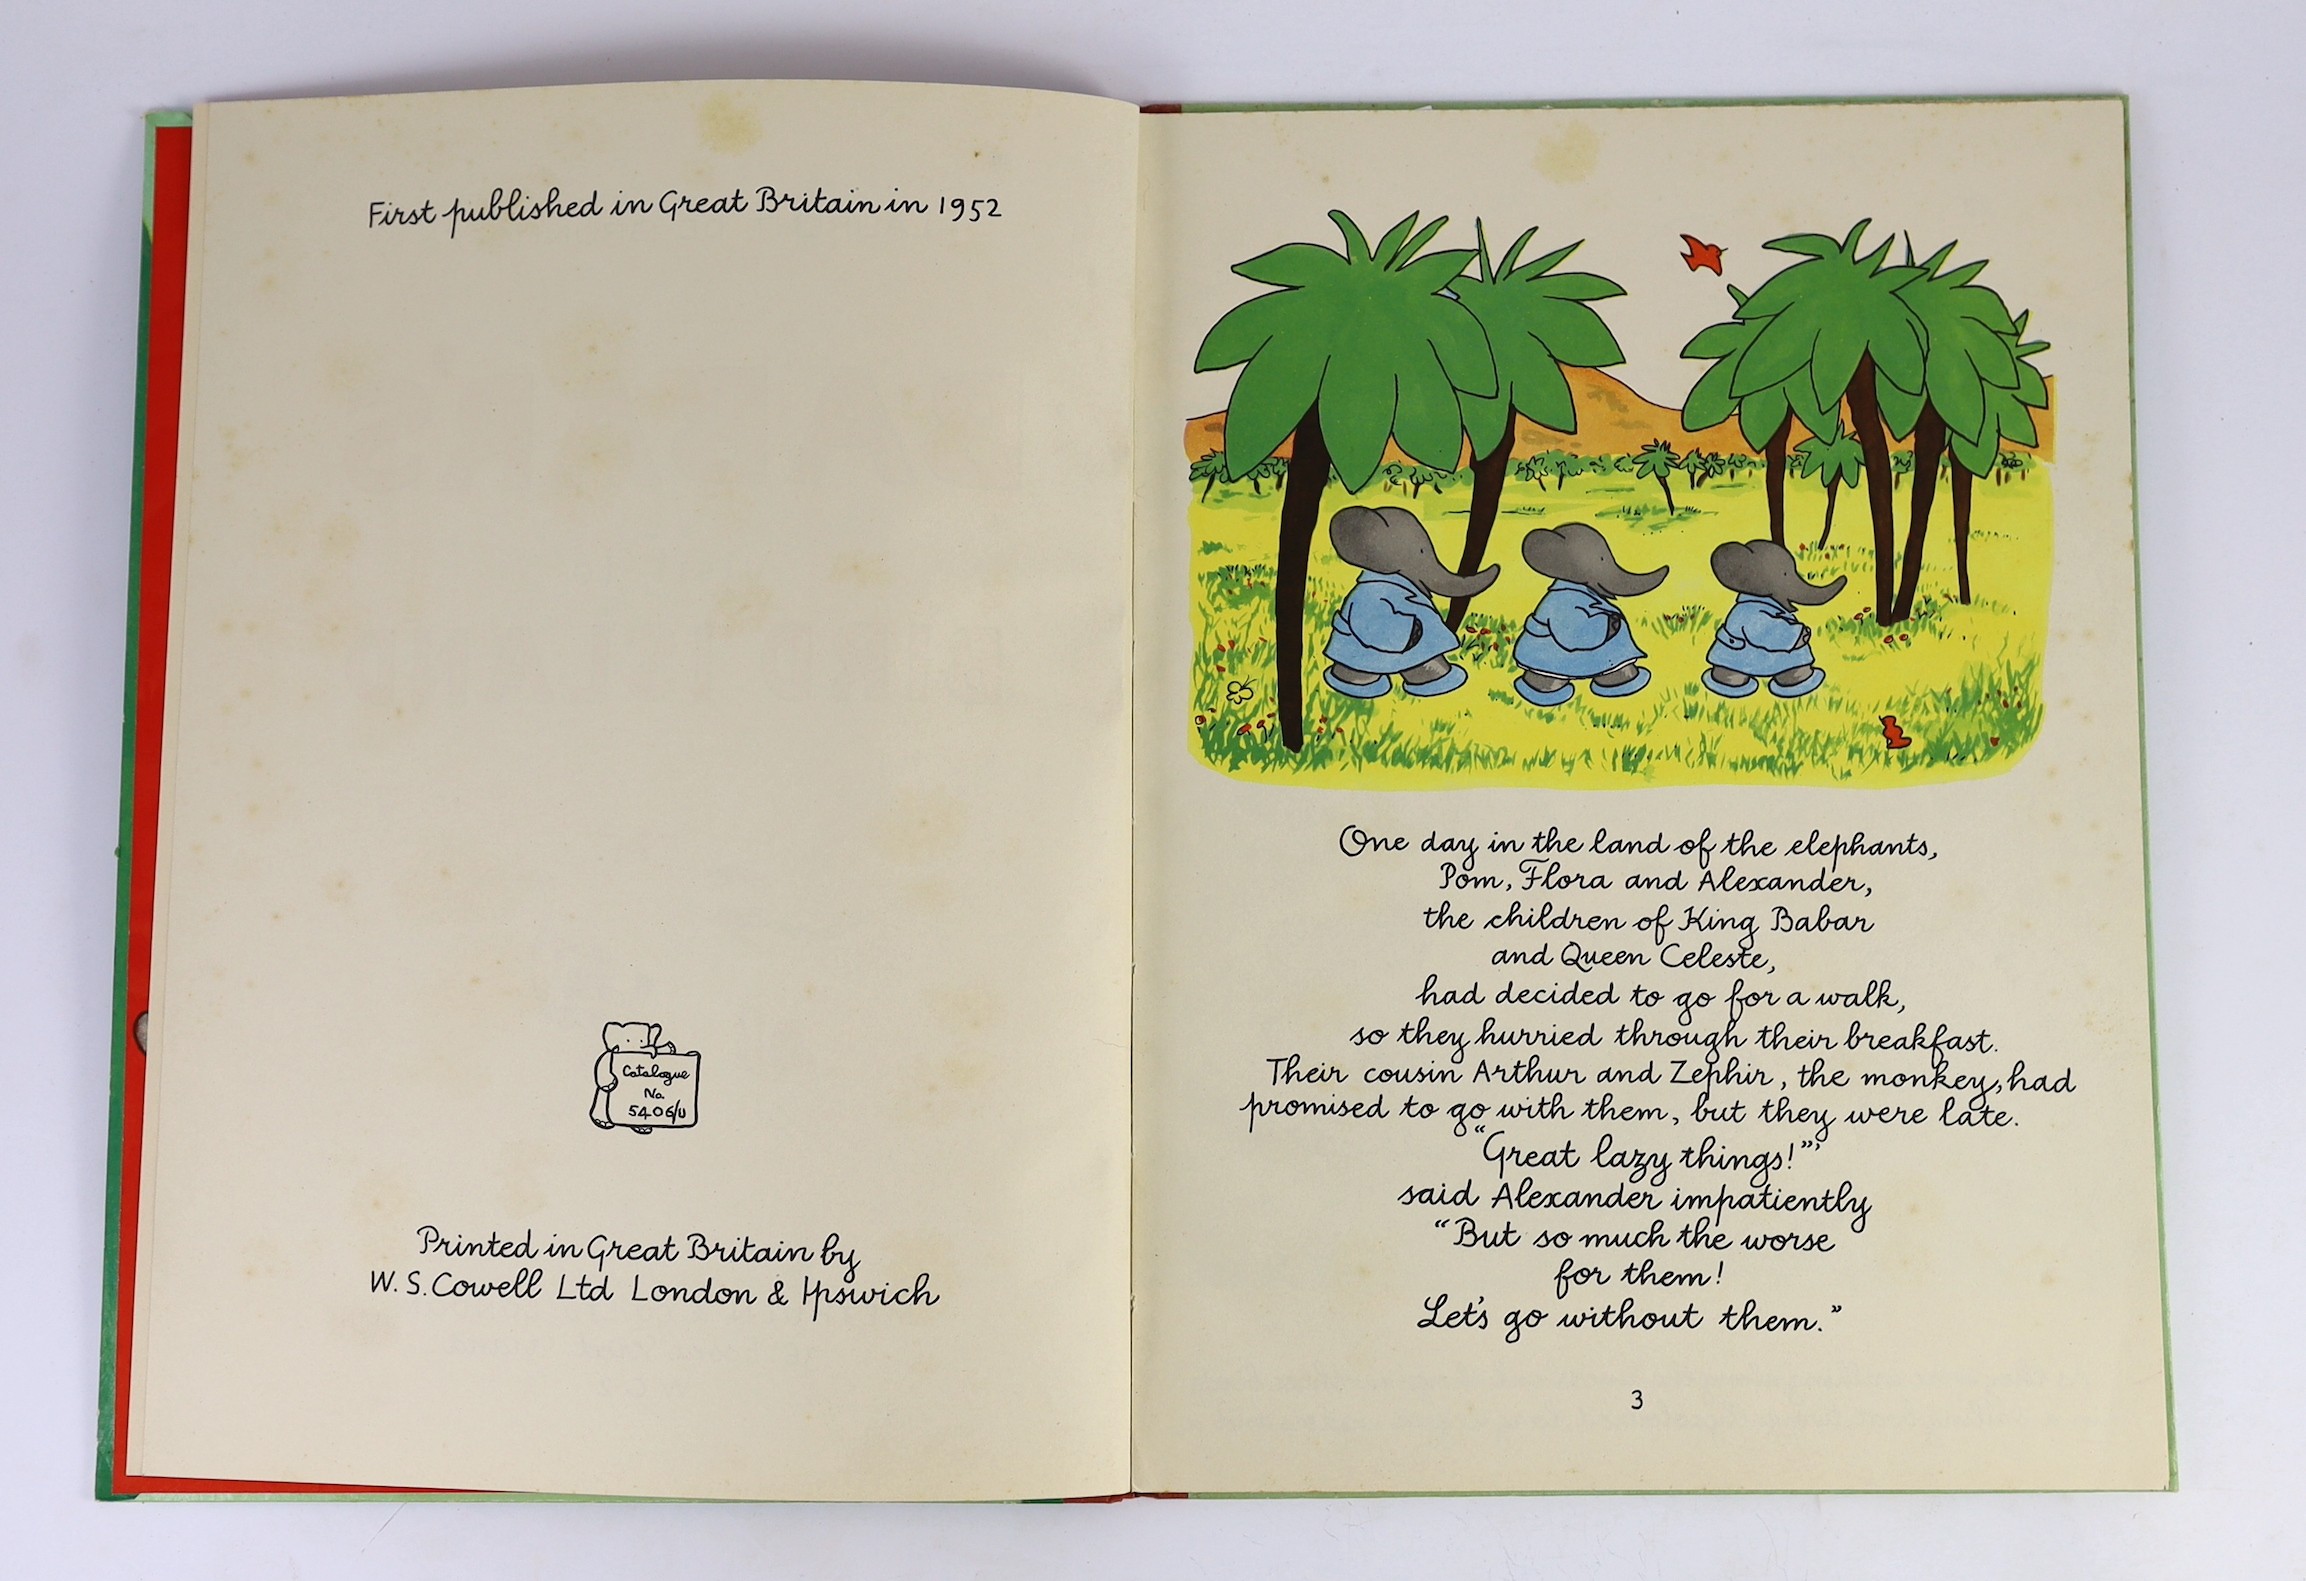 First published in Great Britain in 1952
Catalogue
No.
5406/U
Printed in Great Britain by
W. S. Cowell Ltd London & Ipswich
One day in the land of the elephants,
Pom, Flora and Alexander,
the children of King Babar
and Queen Celeste,
had decided to go for a walk,
so they hurried through their breakfast.
Their cousin Arthur and Zephir, the monkey, had
promised to go with them, but they were late.
"Great lazy things!"'
said Alexander impatiently
"But so much the worse
for them!
Let's go without them."
3